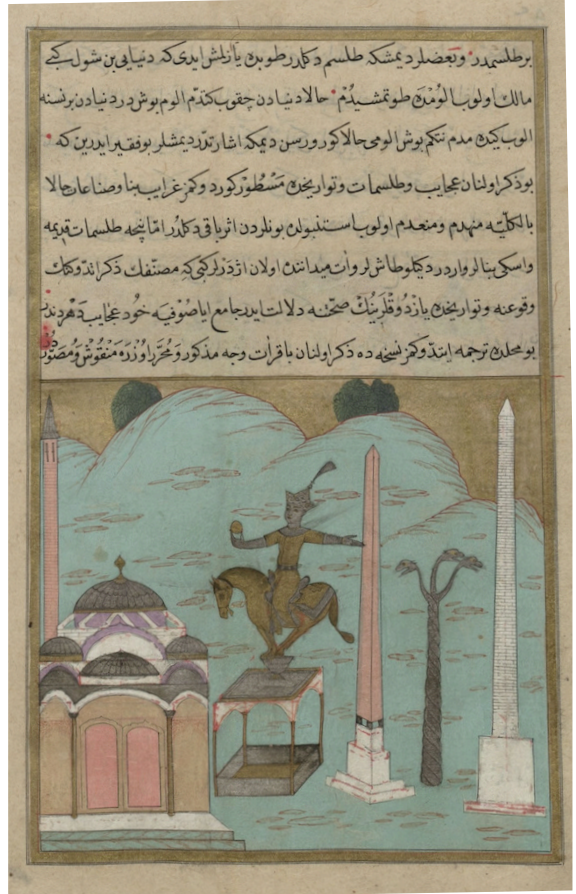 بر طلسمدر وبعضلر ديمشكه طلسم دكلدر طوبده يازلمش ايدى كه دنيايى بن شول كبى
مالك اولوب الومده طوتمشيدم حالا دنيادن چقوب كتدم الوم بوش در دنيادن بر نسنه
الوب كيتمدم نتكم بوش الومى حالا كورورسن ديمكه اشارتدر ديمشلر بو فقير ايدرين كه
بو ذكر اولنان عجايب وطلسمات وتواريخده مسطور كوردوكمز غرايب بنا وصناعات حالا
بالكليه منهدم ومنعدم اولوب استنبولده بونلردن اثر باقى دكلدر اما نيجه طلسمات قديمه
واسكى بنالر واردر ديكلو طاشلر وات ميداننده اولان اژدرلر كبى كه مصنفك ذكر اتدوكنك
وقوعنه وتواريخده يازدوقلرينك صحتنه دلالت ايدر جامع اياصوفيه خود عجايب دهردندر
بو محلده ترجمه ايتدوكمز نسخه ده ذكر اولنان باقر ات وجه مذكور ومحرر اوزره منقوش ومصور